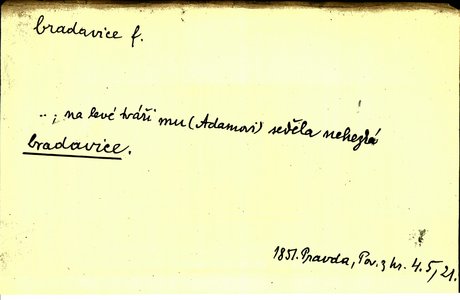 bradavice f.
..; na levé tváři mu (Adamovi) seděla nehezká
bradavice.
1851. Pravda, Pov. z kr. 4. 5, 21.